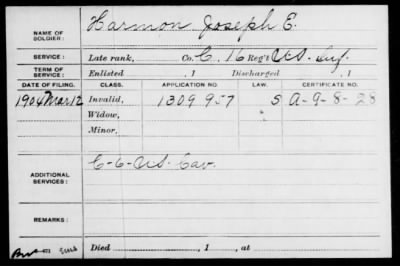 NAME OF SOLDIER: Harmon Joseph E.
SERVICE: Late rank, Co. C, 16 Reg't U.S. Inf.
TERM OF SERVICE: Enlisted , 1 Discharged , 1
DATE OF FILING. CLASS. APPLICATION NO. LAW. CERTIFICATE NO.
1904 Mar 12 Invalid, 1309957 S A-9-8-28
Widow,
Minor,
ADDITIONAL SERVICES: C-6-U.S. Cav.
REMARKS:
Died , 1 , at